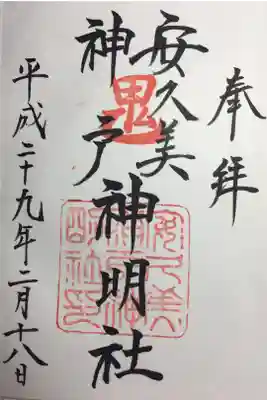 奉拝
安久美
神戸神明社
鬼
安久美神戸神明社印
平成二十九年二月十八日